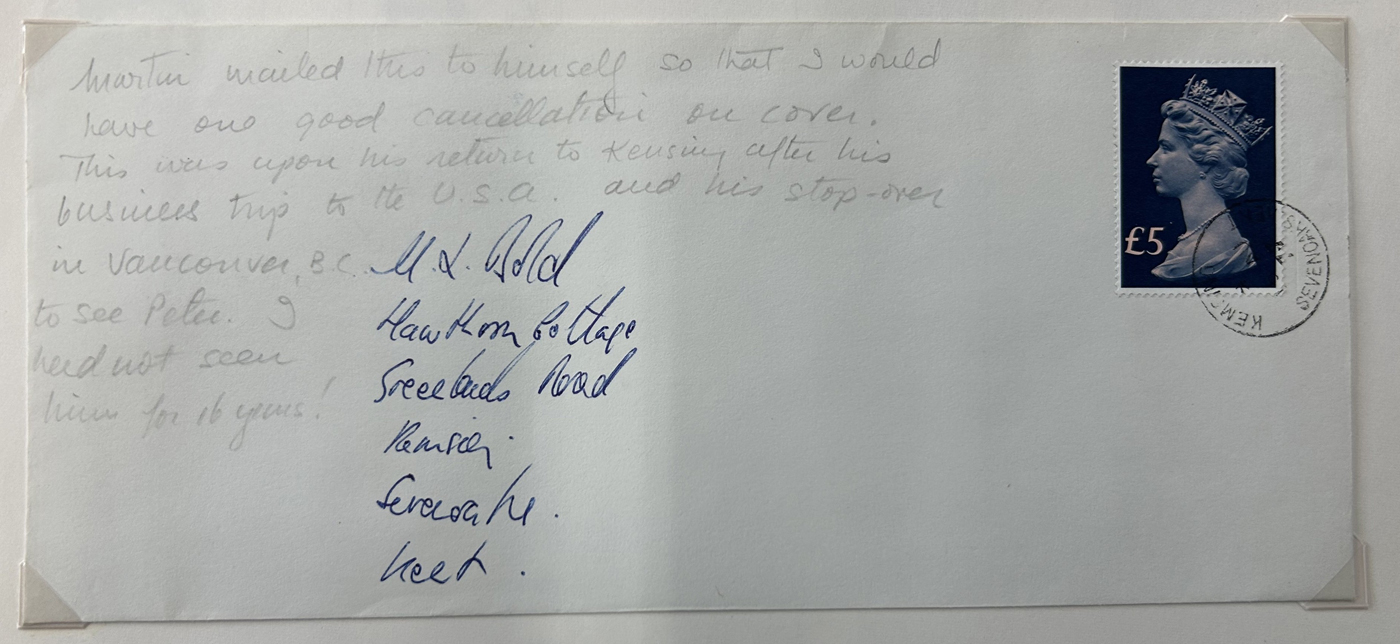 Martin mailed this to himself so that I would
have one good cancellation on cover.
This was upon his return to Kemsing after his
business trip to the U.S.A. and his stop-over
in Vancouver, B.C.
to see Peter. I
had not seen
him for 16 years!
M. L.
Hawthorn Cottage
Road
Kemsing
Sevenoaks.
Kent.
£5
KEMSING
SEVENOAKS